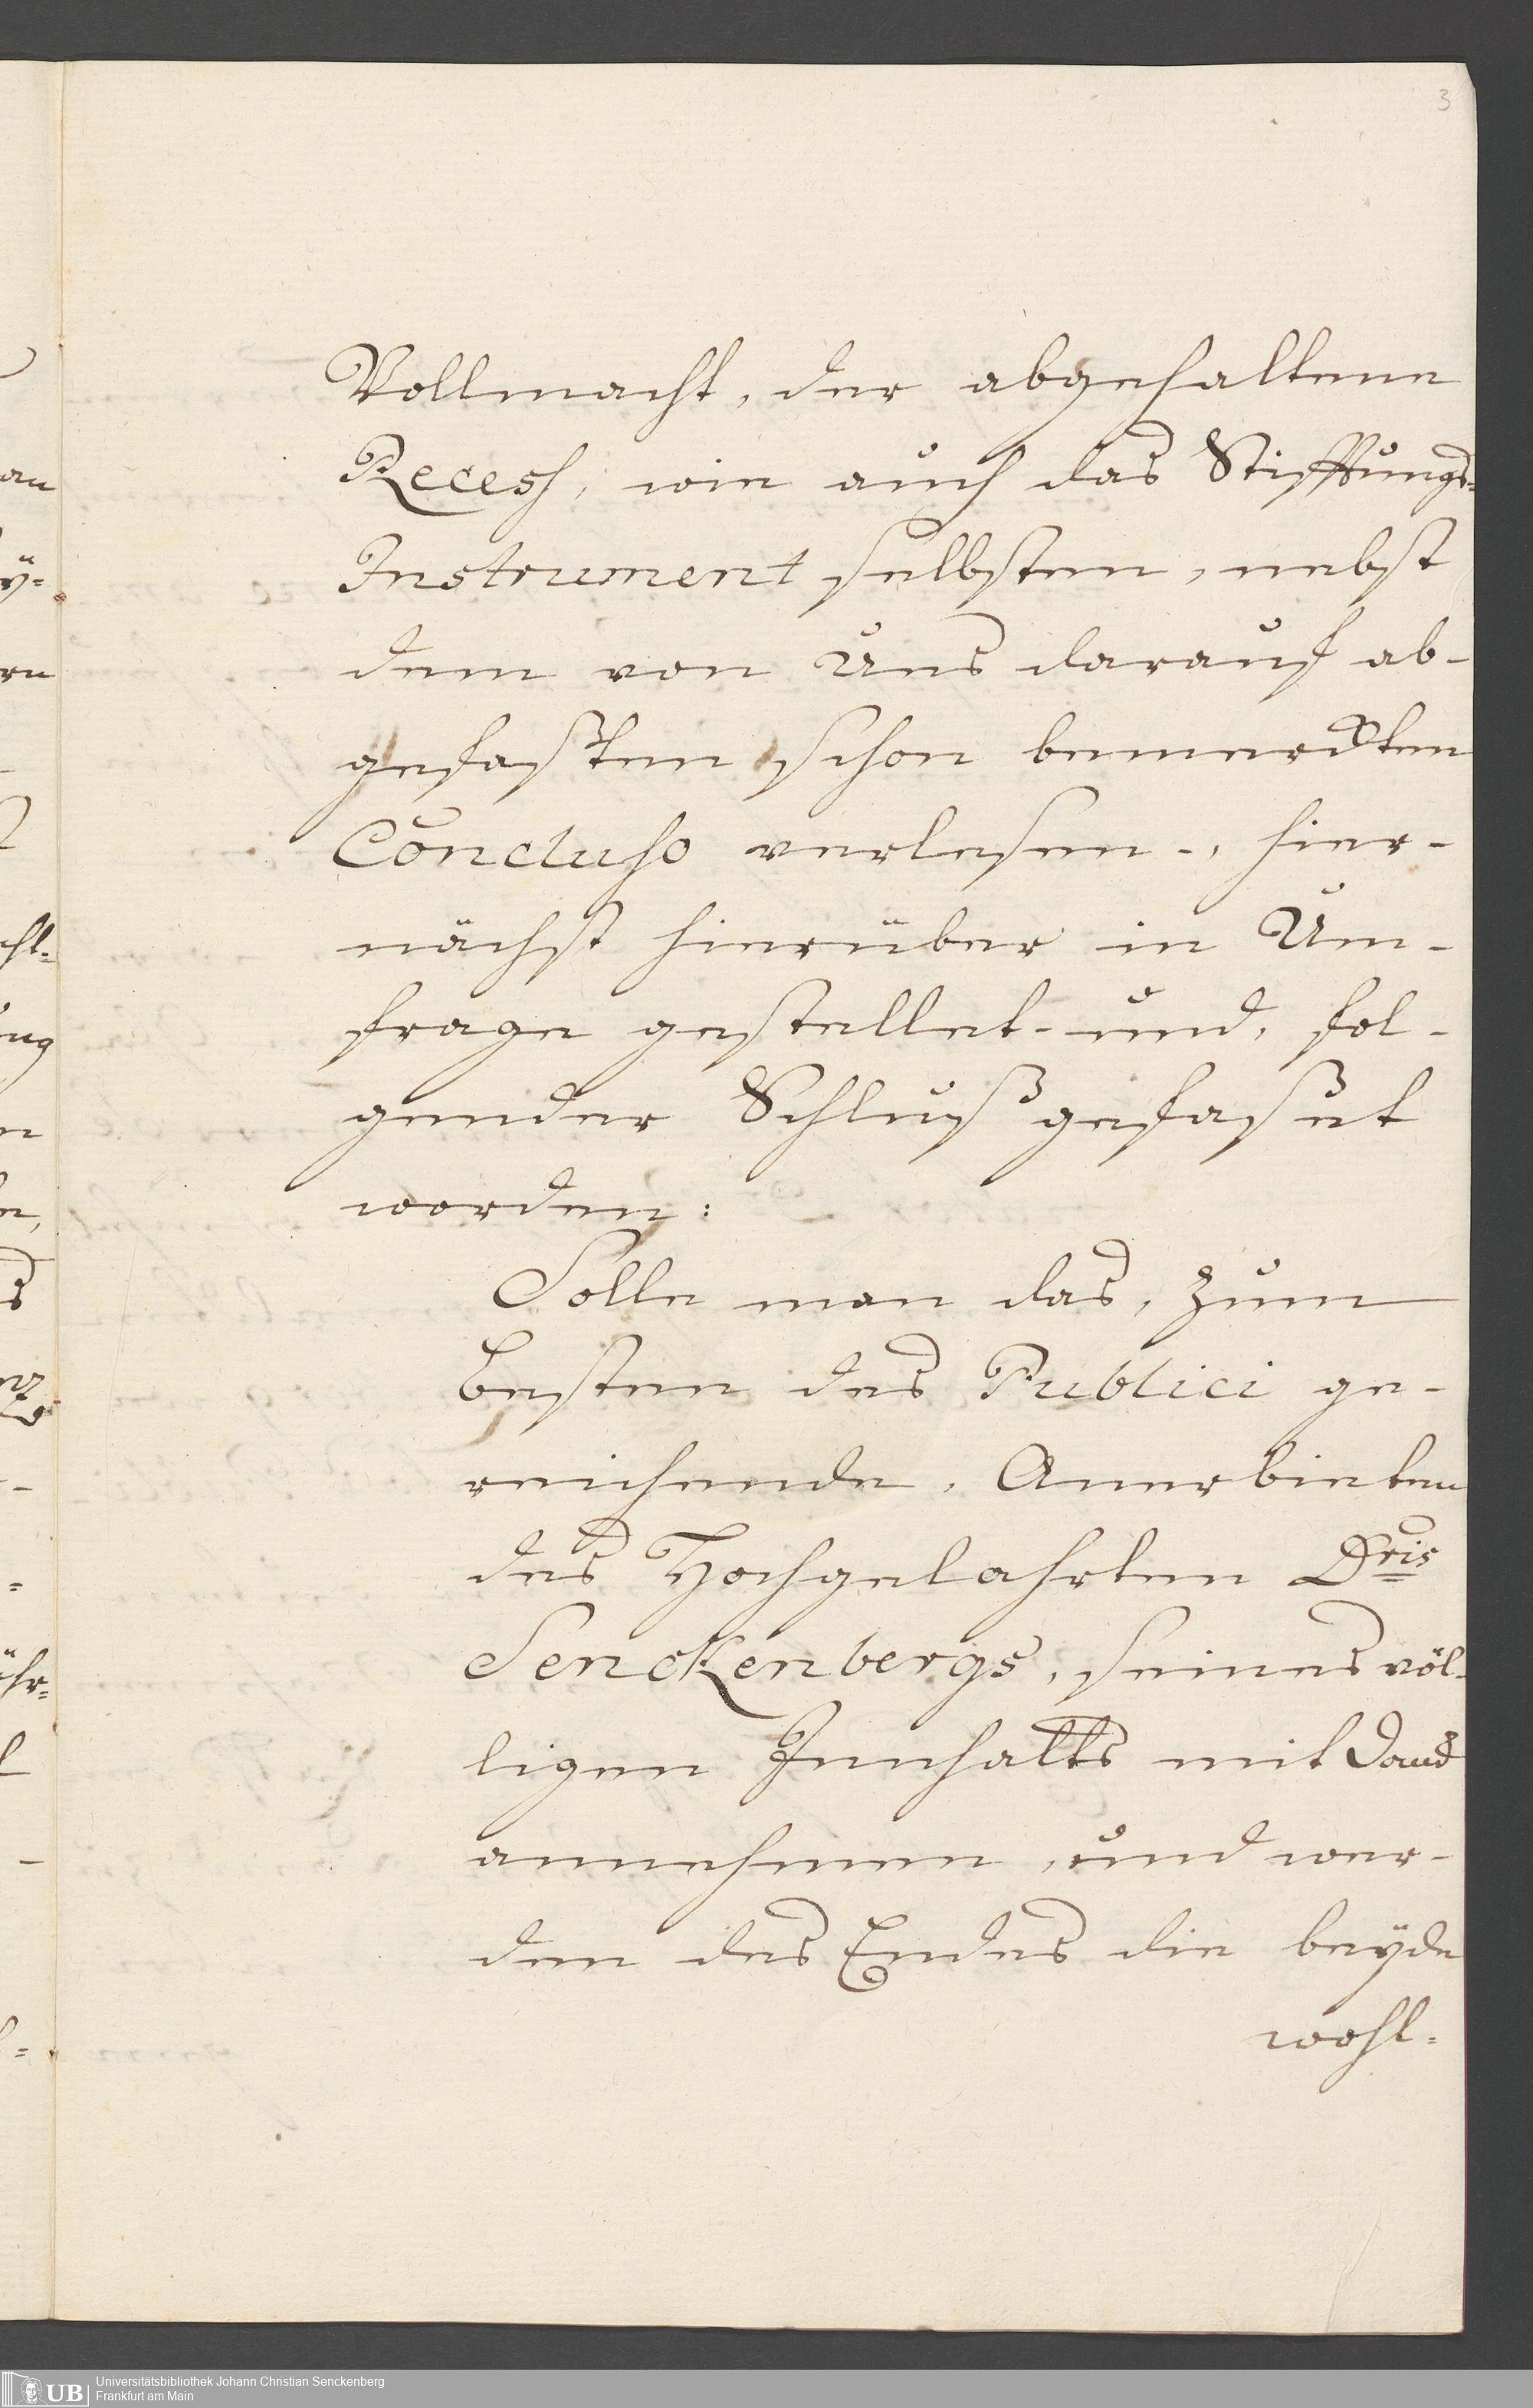 3
Vollmacht, der abgehaltene
Recess, wie auch das Stifftungs-
Instrument selbsten, nebst
dem von Uns darauf ab-
gefaßten schon bemerckten
Concluso verlesen-, hier-
nächst hierüber in Um-
frage gestellet- und, fol-
gender Schluß gefaßet
worden:
Solle man das, zum
besten des Publici ge-
reichende, Anerbieten
des Hochgelahrten Dris
Senckenbergs, seines völ-
ligen Innhalts mit Danck
annehmen, und wer-
den des Endes die beyde
wohl-
UB Universitätsbibliothek Johann Christian Senckenberg
Frankfurt am Main